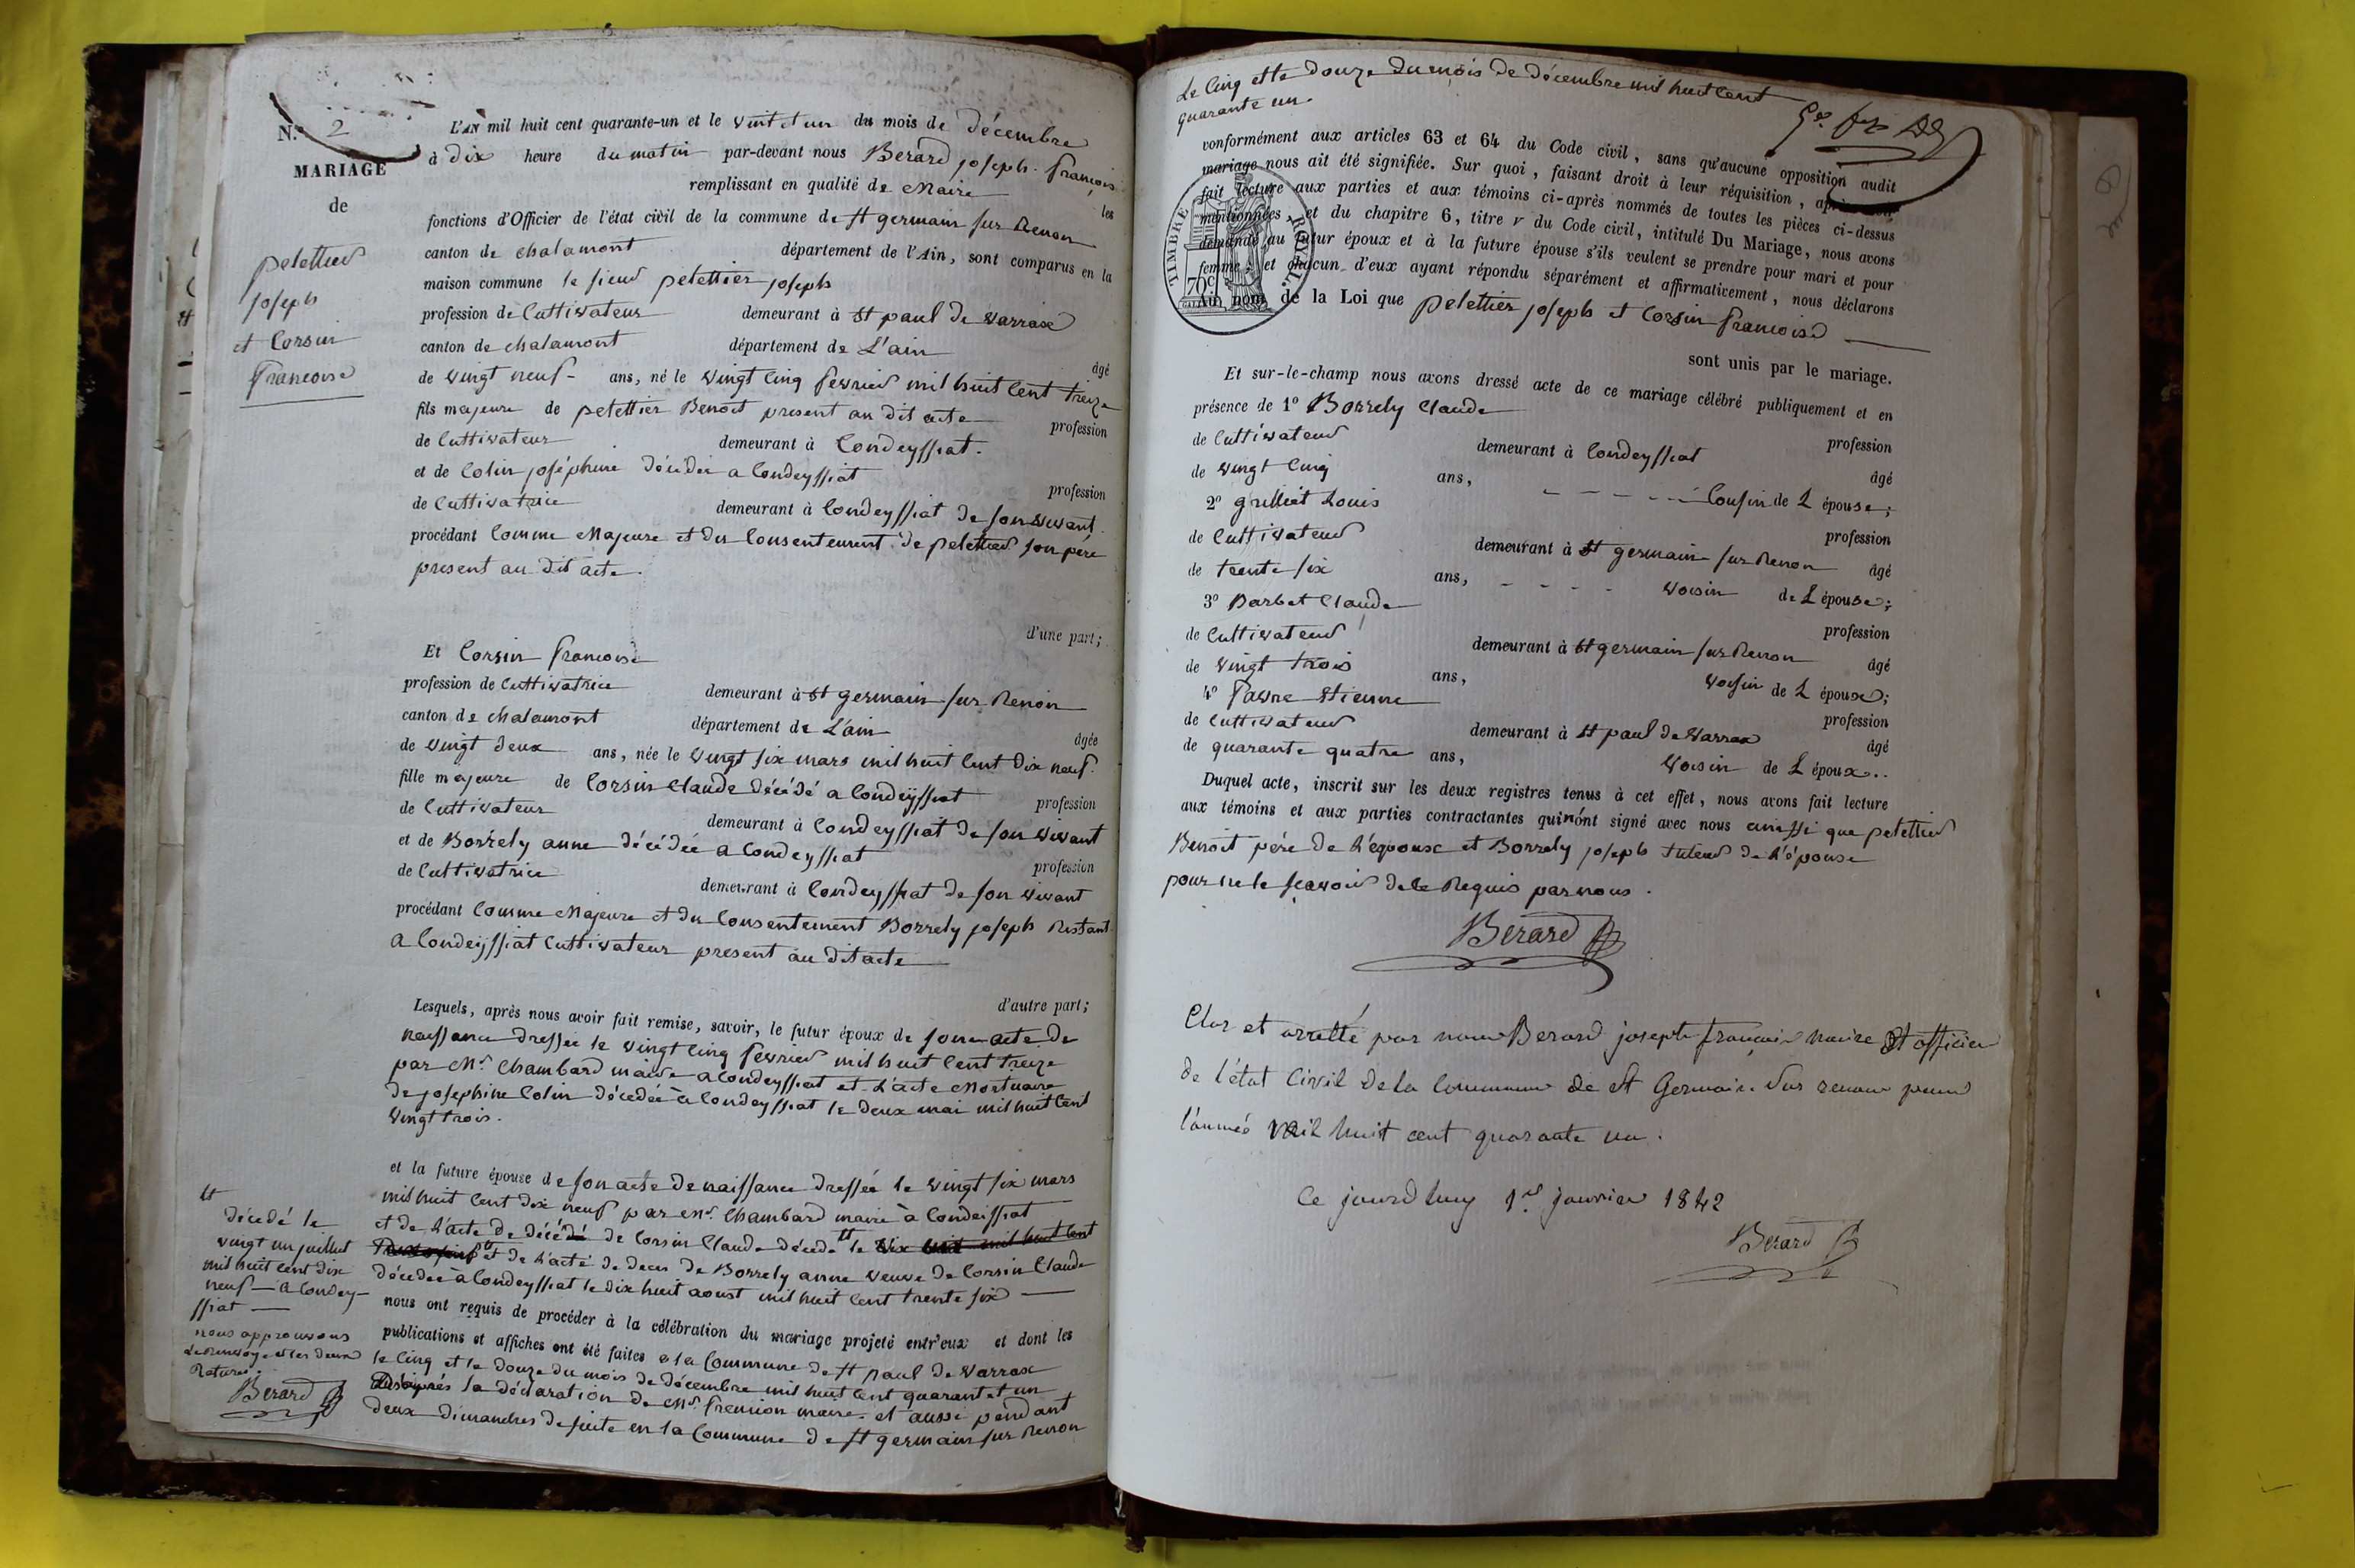 N.° 2
MARIAGE
de
pelettier
joseph
et Corsin
francoise
L'AN mil huit cent quarante-un et le vint et un du mois de décembre
à dix heure du matin par-devant nous Berard joseph francois
remplissant en qualité de Maire les
fonctions d'Officier de l'état civil de la commune de st germain sur Renon
canton de chalamont département de l'Ain, sont comparus en la
maison commune le sieur pelettier joseph
profession de Cultivateur demeurant à st paul de varrax
canton de chalamont département de L'ain
âgé
de vingt neuf ans, né le vingt cinq fevrier mil huit cent treize
fils majeure de pelettier Benoit present au dit acte
profession
de Cultivateur demeurant à Condeyssiat.
et de Colin joséphine décédée a Condeyssiat
profession
de Cultivatrice demeurant à Condeyssiat de son vivant
procédant Comme Majeure et du Consentement de pelettier son père
present au dit acte.
d'une part;
Et Corsin francoise
profession de Cultivatrice demeurant à st germain sur Renon
canton de chalamont département de L'ain
âgée
de vingt deux ans, née le vingt six mars mil huit cent dix neuf.
fille majeure de Corsin Claude décédé a Condeyssiat
profession
de Cultivateur demeurant à Condeyssiat de son vivant
et de Borrely anne décédée a Condeyssiat
profession
de Cultivatrice demeurant à Condeyssiat de son vivant
procédant Comme Majeure et du Consentement Borrely joseph Restant
a Condeyssiat Cultivateur present au dit acte
d'autre part;
Lesquels, après nous avoir fait remise, savoir, le futur époux de son acte de
naissance dressée le vingt cinq fevrier mil huit cent treize
par Mr. Chambard maire a Condeyssiat et L'acte Mortuaire
de josephine Colin décédée à Condeyssiat le deux mai mil huit cent
vingt trois.
et la future épouse de son acte de naissance dressée le vingt six mars
mil huit cent dix neuf par Mr. Chambard maire à Condeissiat
et de L'acte de décédé de Corsin Claude décédé tt le dix huit mil huit cent
et de L'acte de deces de Borrely anne veuve de Corsin Claude
décedée à Condeyssiat le dix huit aoust mil huit cent trente six
nous ont requis de procéder à la célébration du mariage projeté entr'eux et dont les
publications et affiches ont été faites a la Commune de st paul de varrax
le cinq et le douze du mois de décembre mil huit cent quarante et un
D'après la déclaration de Mr. fremion maire. et aussi pendant
deux dimanches de suite en la Commune de st germain sur Renon
tt
décedé le
vingt un juillet
mil huit cent dix
neuf — a Condey-
ssiat —
nous approuvons
le renvoy et les deux
Ratures
Berard
Le Cinq et le douze du mois de décembre mil huit cent
quarante un.
conformément aux articles 63 et 64 du Code civil, sans qu'aucune opposition audit
mariage nous ait été signifiée. Sur quoi, faisant droit à leur réquisition, après avoir
fait lecture aux parties et aux témoins ci-après nommés de toutes les pièces ci-dessus
mentionnées, et du chapitre 6, titre v du Code civil, intitulé Du Mariage, nous avons
demandé au futur époux et à la future épouse s'ils veulent se prendre pour mari et pour
femme; et chacun d'eux ayant répondu séparément et affirmativement, nous déclarons
Au nom de la Loi que pelettier joseph et Corsin francoise
TIMBRE ROYAL
70c
sont unis par le mariage.
Et sur-le-champ nous avons dressé acte de ce mariage célébré publiquement et en
présence de 1° Borrely Claude
profession
de Cultivateur demeurant à Condeyssiat
âgé
de vingt cinq ans, Cousin de L épouse;
2° grilliet Louis
profession
de Cultivateur demeurant à st germain sur Renon
âgé
de trente six ans, voisin de L épouse;
3° Barbet Claude
profession
de Cultivateur demeurant à st germain sur Renon
âgé
de vingt trois ans, voisin de L épouse;
4° favre Etienne
profession
de Cultivateur demeurant à st paul de varrax
âgé
de quarante quatre ans, voisin de L époux..
Duquel acte, inscrit sur les deux registres tenus à cet effet, nous avons fait lecture
aux témoins et aux parties contractantes qui n'ont signé avec nous ainssi que pelettier
Benoit père de L'epoux et Borrely joseph tuteur de L'épouse
pour ne le scavoir de ce Requis par nous.
Berard
Clos et arretté par nous Berard joseph françois maire et officier
de l'état Civil de la Commune de St Germain sur renon pour
l'année mil huit cent quarante un.
Ce jourdhuy 1er janvier 1842
Berard